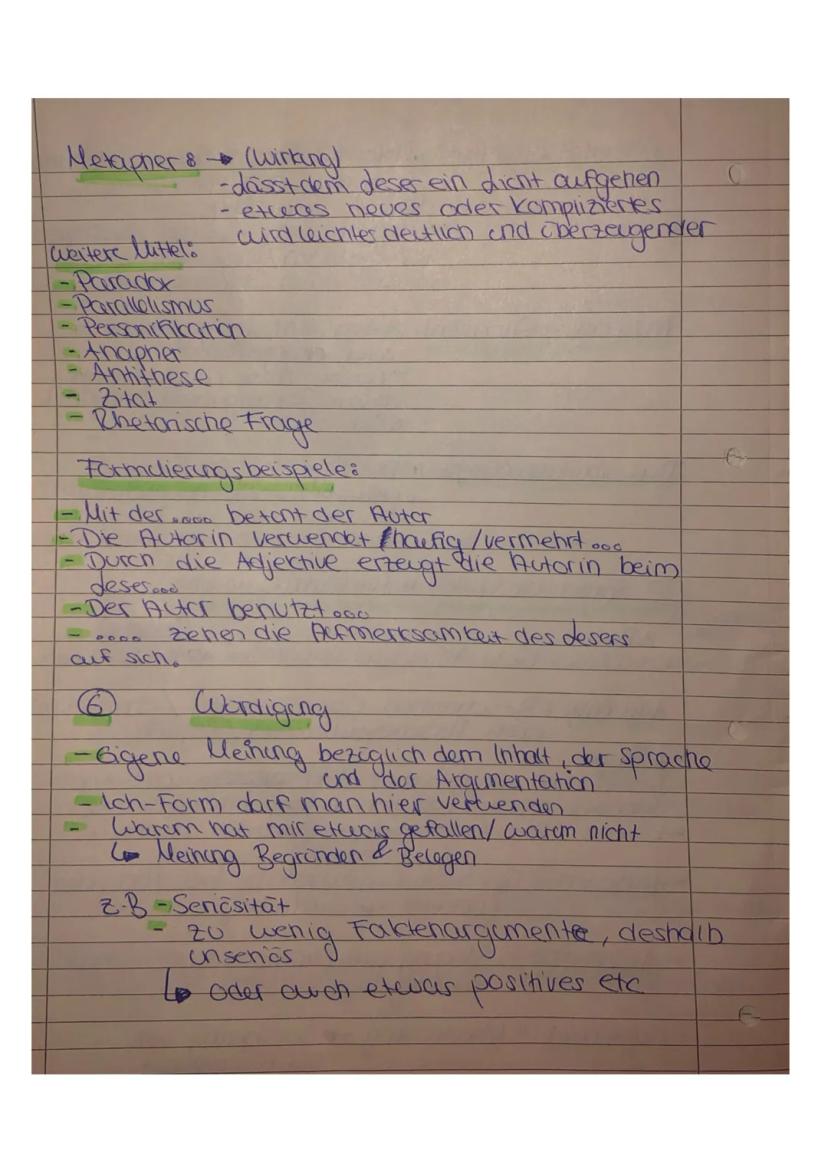 Metapher: → (Wirkung)
- Lässt dem Leser ein Licht aufgehen
- etwas neues oder kompliziertes
wird leichter deutlich und überzeugender
weitere Mittel:
- Paradox
- Parallelismus
- Personifikation
- Anapher
- Antithese
- Zitat
- Rhetorische Frage
Formulierungsbeispiele:
- Mit der .... betont der Autor
- Die Autorin verwendet häufig / vermehrt ...
- Durch die Adjektive erzeugt die Autorin beim
Leser....
- Der Autor benutzt ....
- .... ziehen die Aufmerksamkeit des Lesers
auf sich.
⑥ Würdigung
- Eigene Meinung bezüglich dem Inhalt, der Sprache
und der Argumentation
- Ich-Form darf man hier verwenden
- Warum hat mir etwas gefallen / warum nicht
↳ Meinung Begründen & Belegen
z.B - Seriösität
- zu wenig Faktenargumente, deshalb
unseriös
↳ oder auch etwas positives etc